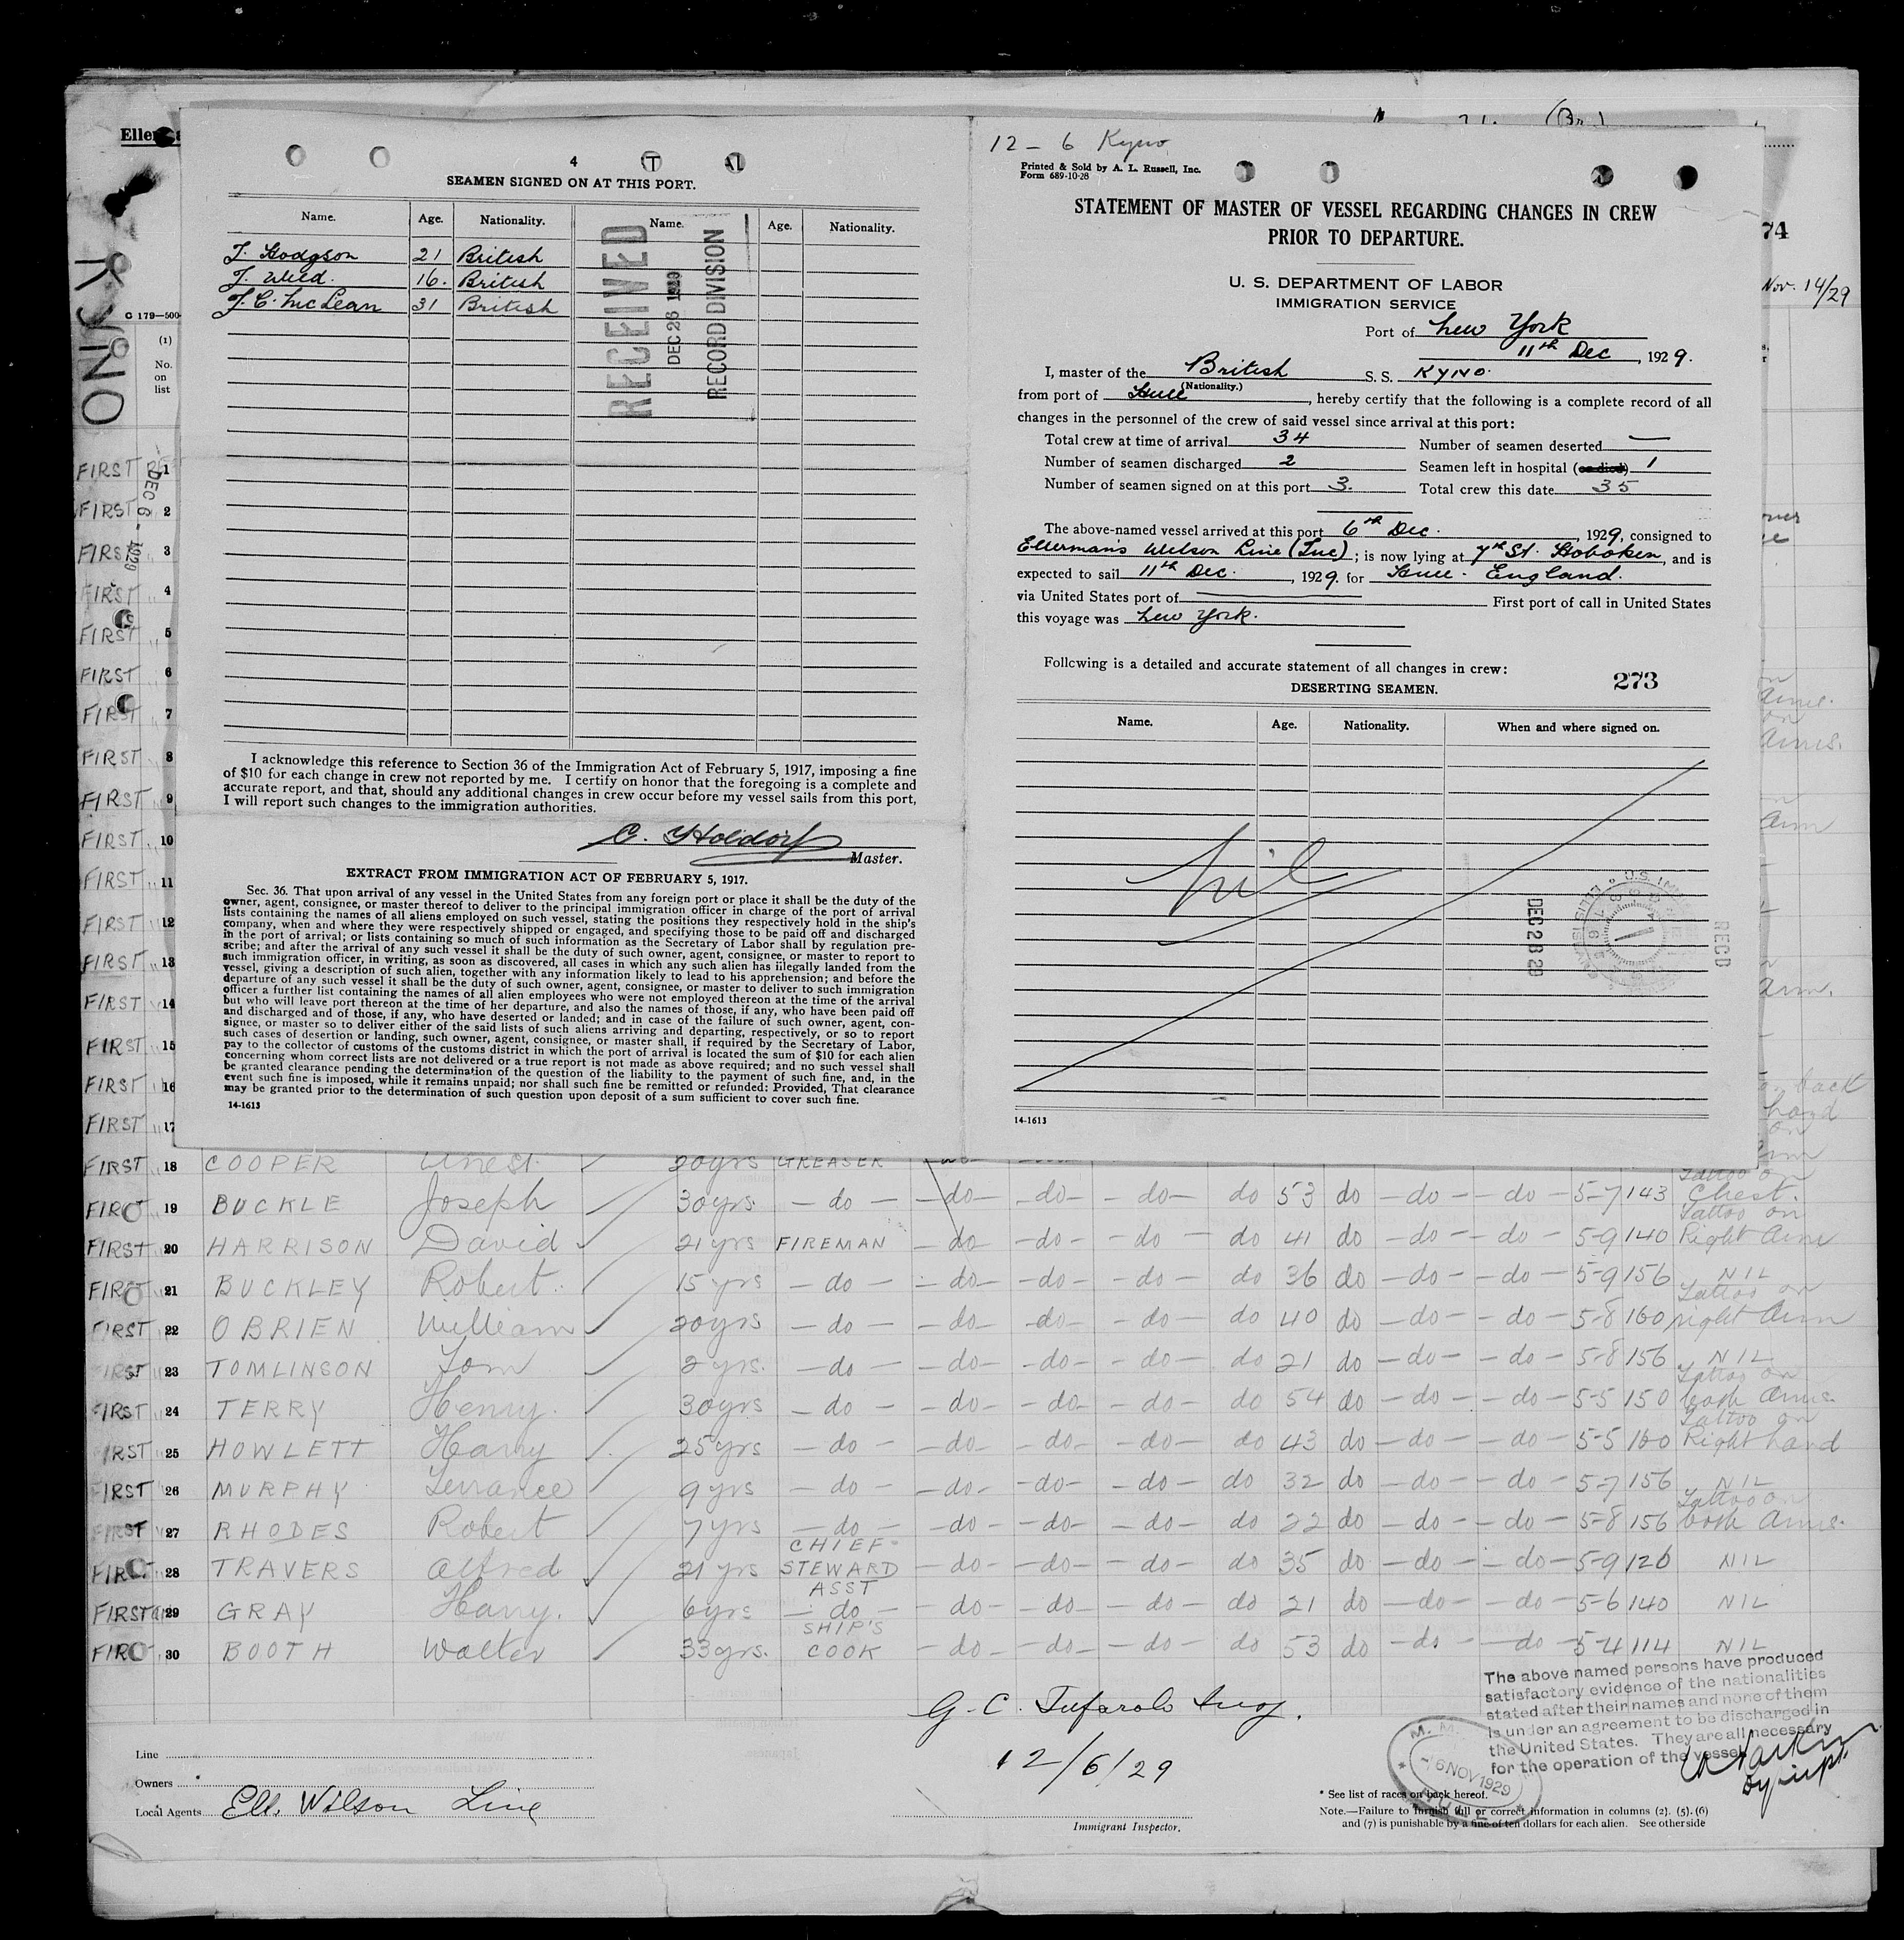 Eller
KYNO
C 179—500
(1)
No.
on
list
4
T
AL
SEAMEN SIGNED ON AT THIS PORT.
Name. Age. Nationality. Name. Age. Nationality.
J. Hodgson 21 British
J. Wild. 16. British
J. C. McLean 31 British
RECEIVED
DEC 26 1929
RECORD DIVISION
I acknowledge this reference to Section 36 of the Immigration Act of February 5, 1917, imposing a fine
of $10 for each change in crew not reported by me. I certify on honor that the foregoing is a complete and
accurate report, and that, should any additional changes in crew occur before my vessel sails from this port,
I will report such changes to the immigration authorities.
C. Holdorf
Master.
EXTRACT FROM IMMIGRATION ACT OF FEBRUARY 5, 1917.
Sec. 36. That upon arrival of any vessel in the United States from any foreign port or place it shall be the duty of the
owner, agent, consignee, or master thereof to deliver to the principal immigration officer in charge of the port of arrival
lists containing the names of all aliens employed on such vessel, stating the positions they respectively hold in the ship's
company, when and where they were respectively shipped or engaged, and specifying those to be paid off and discharged
in the port of arrival; or lists containing so much of such information as the Secretary of Labor shall by regulation pre-
scribe; and after the arrival of any such vessel it shall be the duty of such owner, agent, consignee, or master to report to
such immigration officer, in writing, as soon as discovered, all cases in which any such alien has illegally landed from the
vessel, giving a description of such alien, together with any information likely to lead to his apprehension; and before the
departure of any such vessel it shall be the duty of such owner, agent, consignee, or master to deliver to such immigration
officer a further list containing the names of all alien employees who were not employed thereon at the time of the arrival
but who will leave port thereon at the time of her departure, and also the names of those, if any, who have been paid off
and discharged and of those, if any, who have deserted or landed; and in case of the failure of such owner, agent, con-
signee, or master so to deliver either of the said lists of such aliens arriving and departing, respectively, or so to report
such cases of desertion or landing, such owner, agent, consignee, or master shall, if required by the Secretary of Labor,
pay to the collector of customs of the customs district in which the port of arrival is located the sum of $10 for each alien
concerning whom correct lists are not delivered or a true report is not made as above required; and no such vessel shall
be granted clearance pending the determination of the question of the liability to the payment of such fine, and, in the
event such fine is imposed, while it remains unpaid; nor shall such fine be remitted or refunded: Provided, That clearance
may be granted prior to the determination of such question upon deposit of a sum sufficient to cover such fine.
14-1613
12 - 6 Kyno
Printed & Sold by A. L. Russell, Inc.
Form 689-10-28
STATEMENT OF MASTER OF VESSEL REGARDING CHANGES IN CREW
PRIOR TO DEPARTURE.
U. S. DEPARTMENT OF LABOR
IMMIGRATION SERVICE
Port of New York
11th Dec, 1929.
I, master of the British S. S. KYNO.
(Nationality.)
from port of Hull, hereby certify that the following is a complete record of all
changes in the personnel of the crew of said vessel since arrival at this port:
Total crew at time of arrival 34 Number of seamen deserted —
Number of seamen discharged 2 Seamen left in hospital (or died) 1
Number of seamen signed on at this port 3. Total crew this date 35
The above-named vessel arrived at this port 6th Dec., 1929, consigned to
Ellerman's Wilson Line (Inc); is now lying at 7th St. Hoboken, and is
expected to sail 11th Dec., 1929. for Hull. England.
via United States port of — First port of call in United States
this voyage was New York.
Following is a detailed and accurate statement of all changes in crew:
273
DESERTING SEAMEN.
Name. Age. Nationality. When and where signed on.
Nil
DEC 26 29
REC'D
14-1613
(Br)
74
Nov. 14/29
DEC 6 - 1929
FIRST 1
FIRST 2
FIRST 3
FIRST 4
FIRST 5
FIRST 6
FIRST 7
FIRST 8
FIRST 9
FIRST 10
FIRST 11
FIRST 12
FIRST 13
FIRST 14
FIRST 15
FIRST 16
FIRST 17
back
hand
FIRST 18 COOPER Ernest. 20yrs GREASER
Tattoo on
FIRST 19 BUCKLE Joseph 30yrs. — do — — do — — do — — do — do 53 do — do — — do — 5-7 143 Chest.
Tattoo on
FIRST 20 HARRISON David 21 yrs FIREMAN — do — — do — — do — do 41 do — do — — do — 5-9 140 Right Arm
FIRST 21 BUCKLEY Robert. 15 yrs — do — — do — — do — — do — do 36 do — do — — do — 5-9 156 NIL
Tattoo on
FIRST 22 OBRIEN William 20yrs — do — — do — — do — — do — do 40 do — do — — do — 5-8 160 right Arm
FIRST 23 TOMLINSON Tom 2 yrs. — do — — do — — do — — do — do 21 do — do — — do — 5-8 156 NIL
Tattoo on
FIRST 24 TERRY Henry 30yrs — do — — do — — do — — do — do 54 do — do — — do — 5-5 150 both Arms.
Tattoo on
FIRST 25 HOWLETT Harry 25 yrs — do — — do — — do — — do — do 43 do — do — — do — 5-5 160 Right hand
FIRST 26 MURPHY Terrance 9 yrs — do — — do — — do — — do — do 32 do — do — — do — 5-7 156 NIL
Tattoo on
FIRST 27 RHODES Robert 7 yrs — do — — do — — do — — do — do 22 do — do — — do — 5-8 156 both Arms.
CHIEF
FIRST 28 TRAVERS Alfred 21 yrs STEWARD — do — — do — — do — do 35 do — do — — do — 5-9 126 NIL
ASST
FIRST 29 GRAY Harry. 6yrs — do — — do — — do — — do — do 21 do — do — — do — 5-6 140 NIL
SHIP'S
FIRST 30 BOOTH Walter 33yrs. COOK — do — — do — — do — do 53 do — do — — do — 5-4 114 NIL
The above named persons have produced
satisfactory evidence of the nationalities
stated after their names and none of them
is under an agreement to be discharged in
the United States. They are all necessary
for the operation of the vessel.
G. C. Tufarolo Insp.
12/6/29
16 NOV 1929
HULL
Line
Owners
Local Agents Ell. Wilson Line
Immigrant Inspector.
* See list of races on back hereof.
Note.—Failure to furnish full or correct information in columns (2), (5), (6)
and (7) is punishable by a fine of ten dollars for each alien. See other side